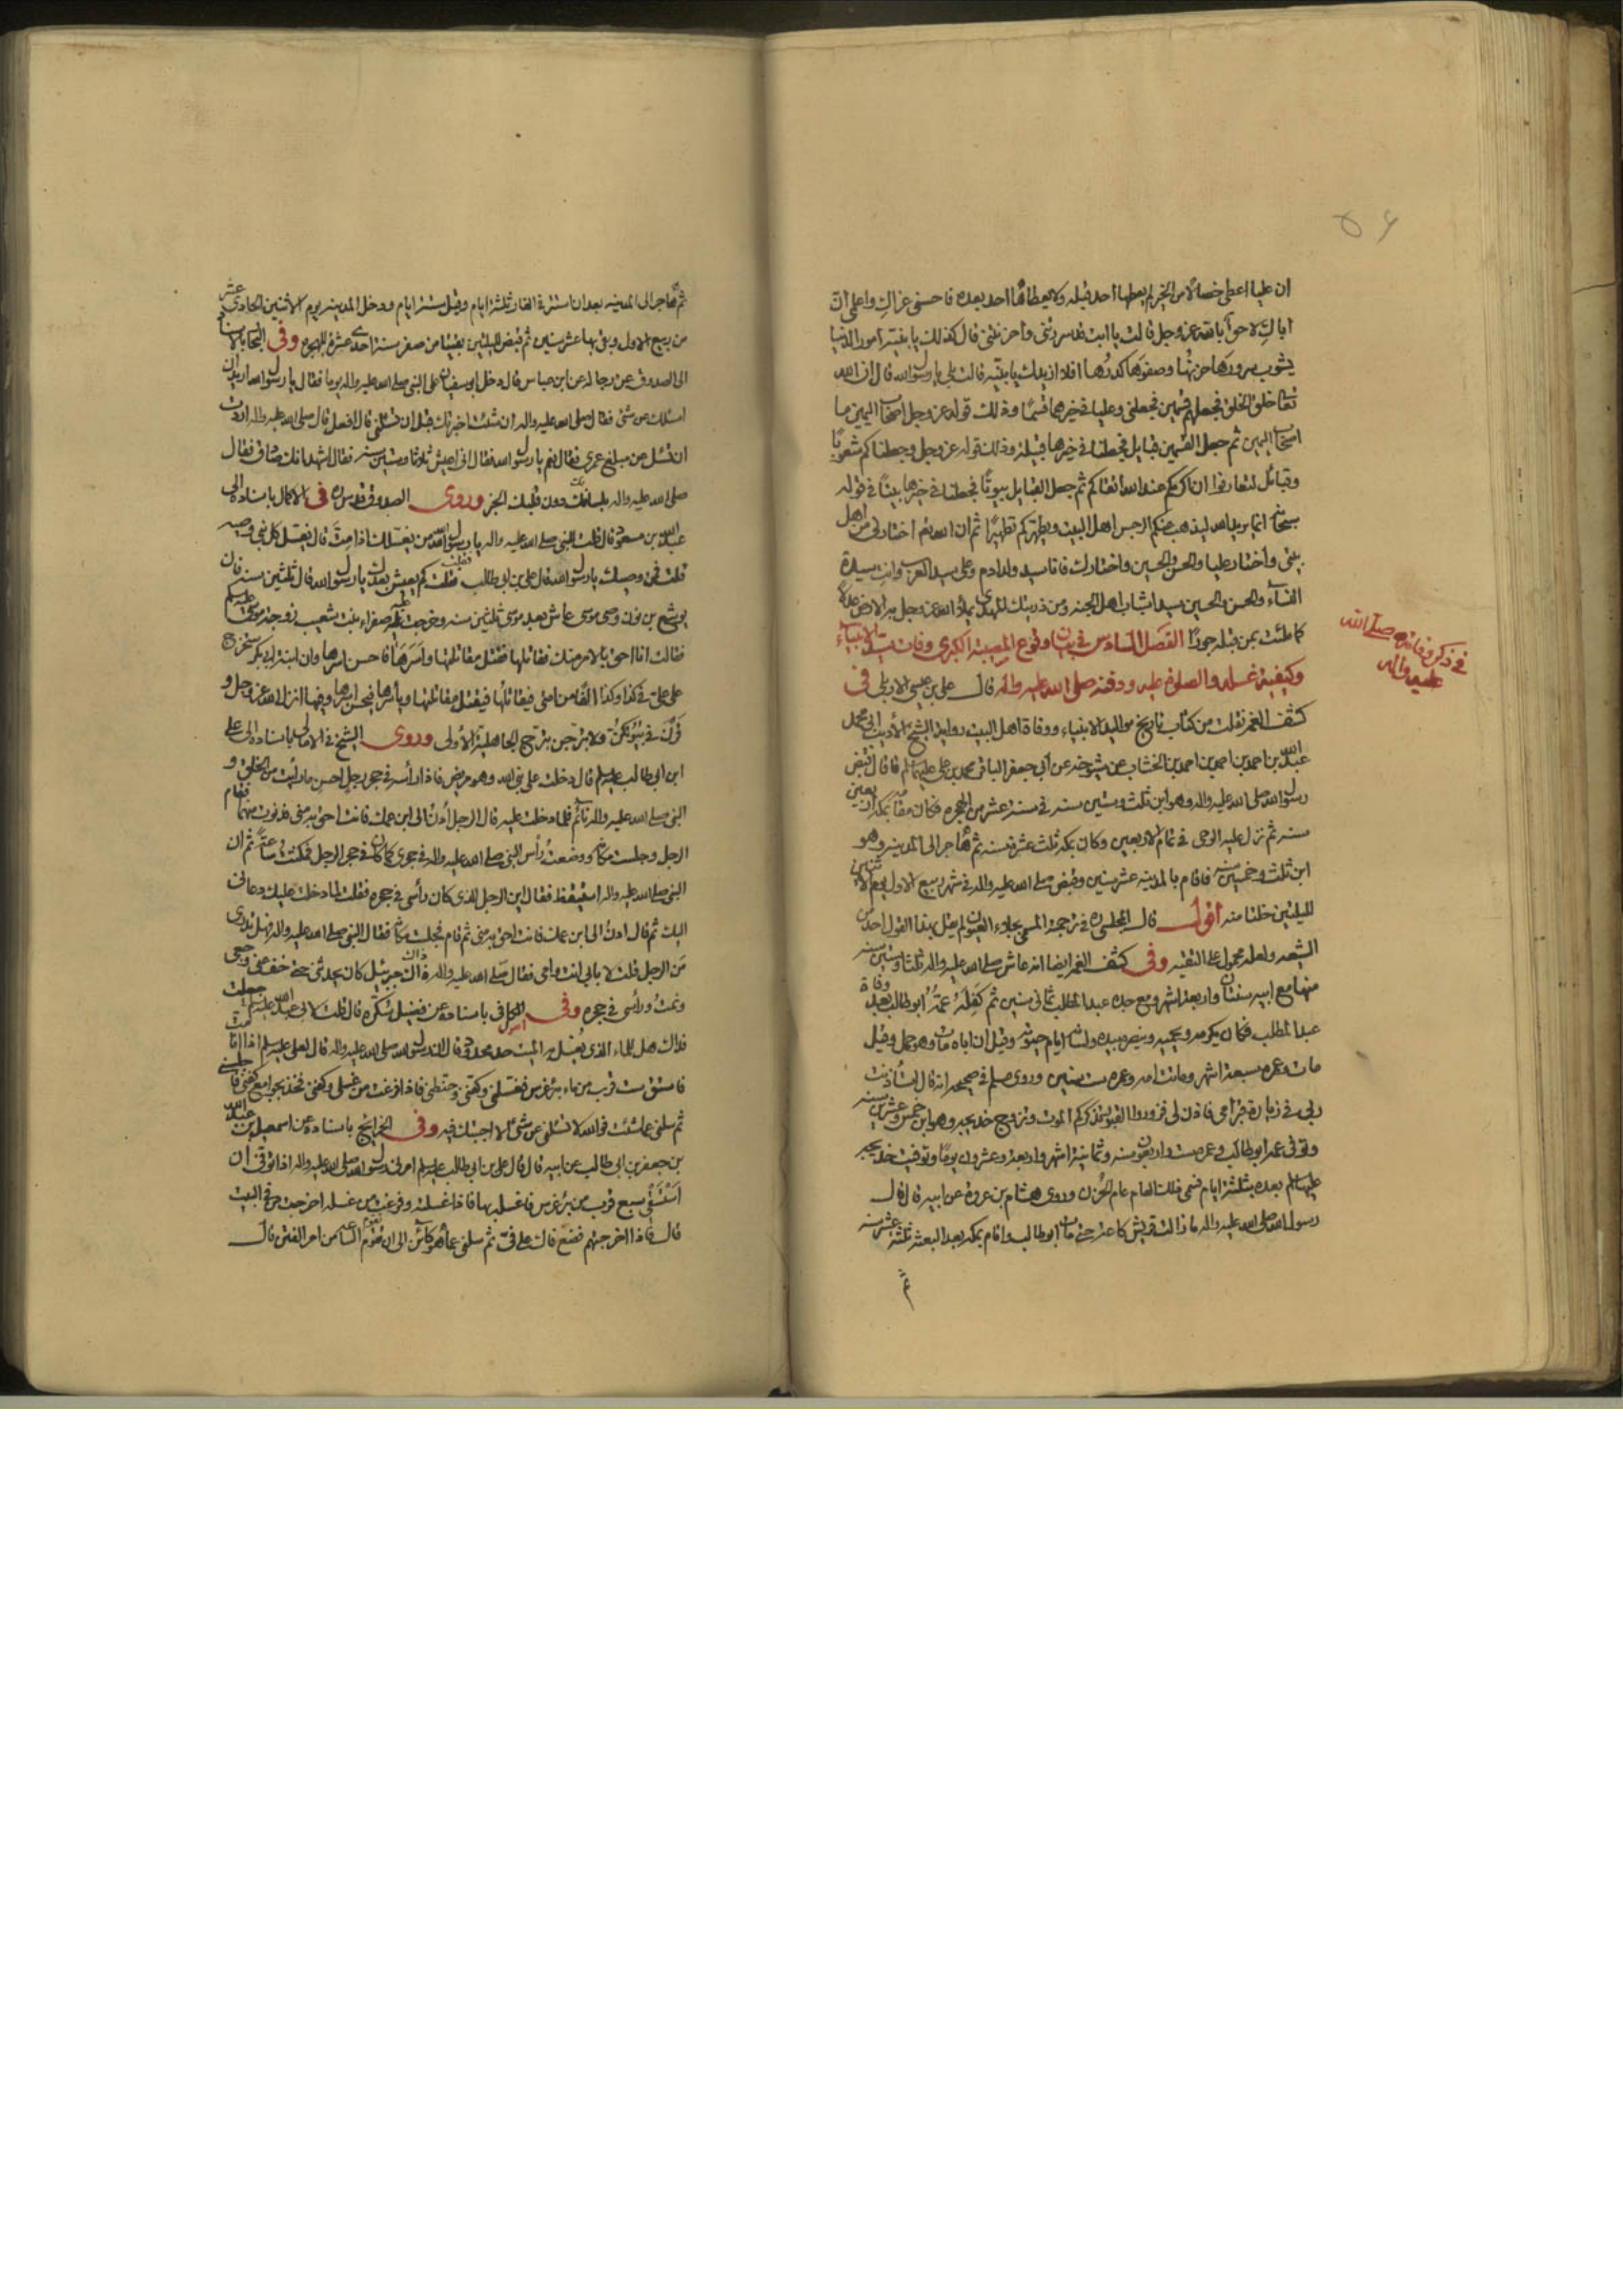 ۵۶
ان عليا اعطى خصالا من الخير لم يعطها احد قبله ولا يعطاها احد بعده فاحسنى عزاك واعلمى ان
اباك لاحق بالله عز وجل قالت يا ابت قد سررتنى واحزنتنى قال كذلك يا بنيته امور الدنيا
يشوب سرورها حزنها وصفوها كدرها افلا ازيدك يا بنيه قالت بلى يا رسول الله قال ان الله
تعالى خلق الخلق فجعلهم قسمين فجعلنى وعليا فى خيرهما قسما وذلك قوله عز وجل اصحاب اليمين ما
اصحاب اليمين ثم جعل القسمين قبايل فجعلنا فى خيرها قبيلة وذلك قوله عز وجل وجعلناكم شعوبا
وقبائل لتعارفوا ان اكرمكم عند الله اتقاكم ثم جعل القبايل بيوتا فجعلنا فى خيرها بيتا فى قوله
سبحانه انما يريد الله ليذهب عنكم الرجس اهل البيت ويطهركم تطهيرا ثم ان الله تعالى اختارنى من اهل
بيتى واختار عليا والحسن والحسين واختارك فانا سيد ولد ادم وعلى سيد العرب وانت سيدة
النساء والحسن والحسين سيدا شباب اهل الجنة ومن ذريتك المهدى يملأ الله عز وجل به الارض عدلا
كما ملئت بمن قبله جورا الفصل السادس فى بيان وقوع المصيبة الكبرى وفات سيد الانبياء
فى ذكر وفاته صلى الله
عليه واله
وكيفية غسله والصلوة عليه ودفنه صلى الله عليه واله قال على بن عيسى الاربلى فى
كشف الغمه نقلت من كتاب تاريخ مواليد الانبياء ووفاة اهل البيت رواية الشيخ الأديب ابى محمد
عبد الله بن احمد بن احمد بن احمد بن الخشاب عن شيوخه عن ابى جعفر الباقر محمد بن على عليهما السلم قال قبض
رسول الله صلى الله عليه واله وهو ابن ثلث وستين سنه فى سنة عشر من الهجره فكان مقامه بمكه اربعين
سنه ثم نزل عليه الوحى فى تمام الاربعين وكان بمكه ثلث عشرة سنه ثم هاجر الى المدينه وهو
ابن ثلث وخمسين سنه فاقام بالمدينه عشر سنين وقبض صلى الله عليه واله فى شهر ربيع الاول يوم الاثنين
لليلتين خلتا منه اقول قال المجلسى ره فى ترجمة المسمى بجلاء العيون لم يقل بهذا القول احد من
الشيعه ولعله محمول على التقيه وفى كشف الغمه ايضا انه عاش صلى الله عليه واله ثلثا وستين سنه
منها مع ابيه سنتان واربعة اشهر ومع جده عبد المطلب ثمانى سنين ثم كفله عمه ابو طالب بعد وفاة
عبد المطلب فكان يكرمه ويحميه وينصره بيده ولسانه ايام حيوته وقيل ان اباه مات وهو حمل وقيل
مات وعمره سبعة اشهر وماتت امه وعمره ست سنين وروى مسلم فى صحيحه انه قال استأذنت
ربى فى زيارة قبر امى فاذن لى فزوروا القبور تذكركم الموت وتزوج خديجه وهو ابن خمس وعشرين سنه
وتوفى عمه ابو طالب وعمره ست واربعون سنه وثمانية اشهر واربعة وعشرون يوما وتوفيت خديجه
عليها السلم بعده بثلثة ايام فسمى ذلك العام عام الحزن وروى هشام بن عروة عن ابيه قال قال
رسول الله صلى الله عليه واله ما زالت قريش كاعة حتى مات ابو طالب واقام بمكه بعد البعثه ثلثة عشر سنه
ثم
ثم هاجر الى المدينه بعد ان استتر فى الغار ثلثة ايام وقيل ستة ايام ودخل المدينه يوم الاثنين الحادى عشر
من ربيع الاول وبقى بها عشر سنين ثم قبض لليلتين بقيتا من صفر سنة احدى عشرة للهجره وفى البحار بالاسناد
الى الصدوق عن رجاله عن ابن عباس قال دخل ابو سفيان على النبى صلى الله عليه واله يوما فقال يا رسول الله اريد ان
اسئلك عن شئ فقال صلى الله عليه واله ان شئت اخبرتك قبل ان تسئلنى قال افعل قال صلى الله عليه واله اردت
ان تسئل عن مبلغ عمرى فقال نعم يا رسول الله فقال انى اعيش ثلاثا وستين سنه فقال اشهد انك صادق فقال
صلى الله عليه واله بلسانك دون قلبك الخبر وروى الصدوق قدس سره فى الاكمال باسناده الى
عبد الله بن مسعود قال قلت للنبى صلى الله عليه واله يا رسول الله من يغسلك اذا مت قال يغسل كل نبى وصيه
قلت فمن وصيك يا رسول الله قال على بن ابى طالب فقلت كم يعيش بعدك يا رسول الله قال ثلثين سنه فان
يوشع بن نون وصى موسى عاش بعد موسى ثلثين سنه وخرجت عليه صفراء بنت شعيب زوجة موسى عليه السلم
فقالت انا احق بالامر منك فقاتلها فقتل مقاتلتها واسرها فاحسن اسرها وان ابنة ابى بكر ستخرج
على على فى كذا وكذا الفا من امتى فيقاتلها فيقتل مقاتلتها ويأسرها فيحسن اسرها وفيها انزل الله عز وجل و
قرن فى بيوتكن ولا تبرجن تبرج الجاهلية الأولى وروى الشيخ فى الامالى باسناده الى على
ابن ابى طالب عليه السلم قال دخلت على نبى الله وهو مريض فاذا رأسه فى حجر رجل احسن ما رأيت من الخلق و
النبى صلى الله عليه واله نائم فلما دخلت عليه قال الرجل ادن الى ابن عمك فانت احق به منى فدنوت منهما فقام
الرجل وجلست مكانه ووضعت رأس النبى صلى الله عليه واله فى حجرى كما كان فى حجر الرجل فمكثت ساعة ثم ان
النبى صلى الله عليه واله استيقظ فقال اين الرجل الذى كان رأسى فى حجره فقلت لما دخلت عليك دعانى
اليك ثم قال ادن الى ابن عمك فانت احق به منى ثم قام فجلست مكانه فقال النبى صلى الله عليه واله فهل تدرى
من الرجل قلت لا بابى انت وامى فقال صلى الله عليه واله ذاك جبرئيل كان يحدثنى حتى خف عنى وجعى
ونمت ورأسى فى حجره وفى الكافى باسناده عن فضيل سكره قال قلت لابى عبد الله عليه السلم جعلت
فداك هل للماء الذى يغسل به الميت حد محدود قال ان رسول الله صلى الله عليه واله قال لعلى عليه السلم اذا انا مت
فاستق ست قرب من ماء بئر غرس فغسلنى وكفنى وحنطنى فاذا فرغت من غسلى وكفنى فخذ بجوامع كفنى واجلسنى
ثم سلنى عما شئت فوالله لا تسئلنى عن شئ الا اجبتك فيه وفى الخرائج باسناده عن اسمعيل بن عبد الله
بن جعفر بن ابى طالب عن ابيه قال قال على بن ابى طالب عليه السلم امرنى رسول الله صلى الله عليه واله اذا توفى ان
استسقى سبع قرب من بئر غرس فاغسله بها فاذا غسلته وفرغت من غسله اخرجت من فى البيت
قال فاذا اخرجتهم فضع فاك على فى ثم سلنى عما هو كائن الى ان تقوم الساعه من امر الفتن قال